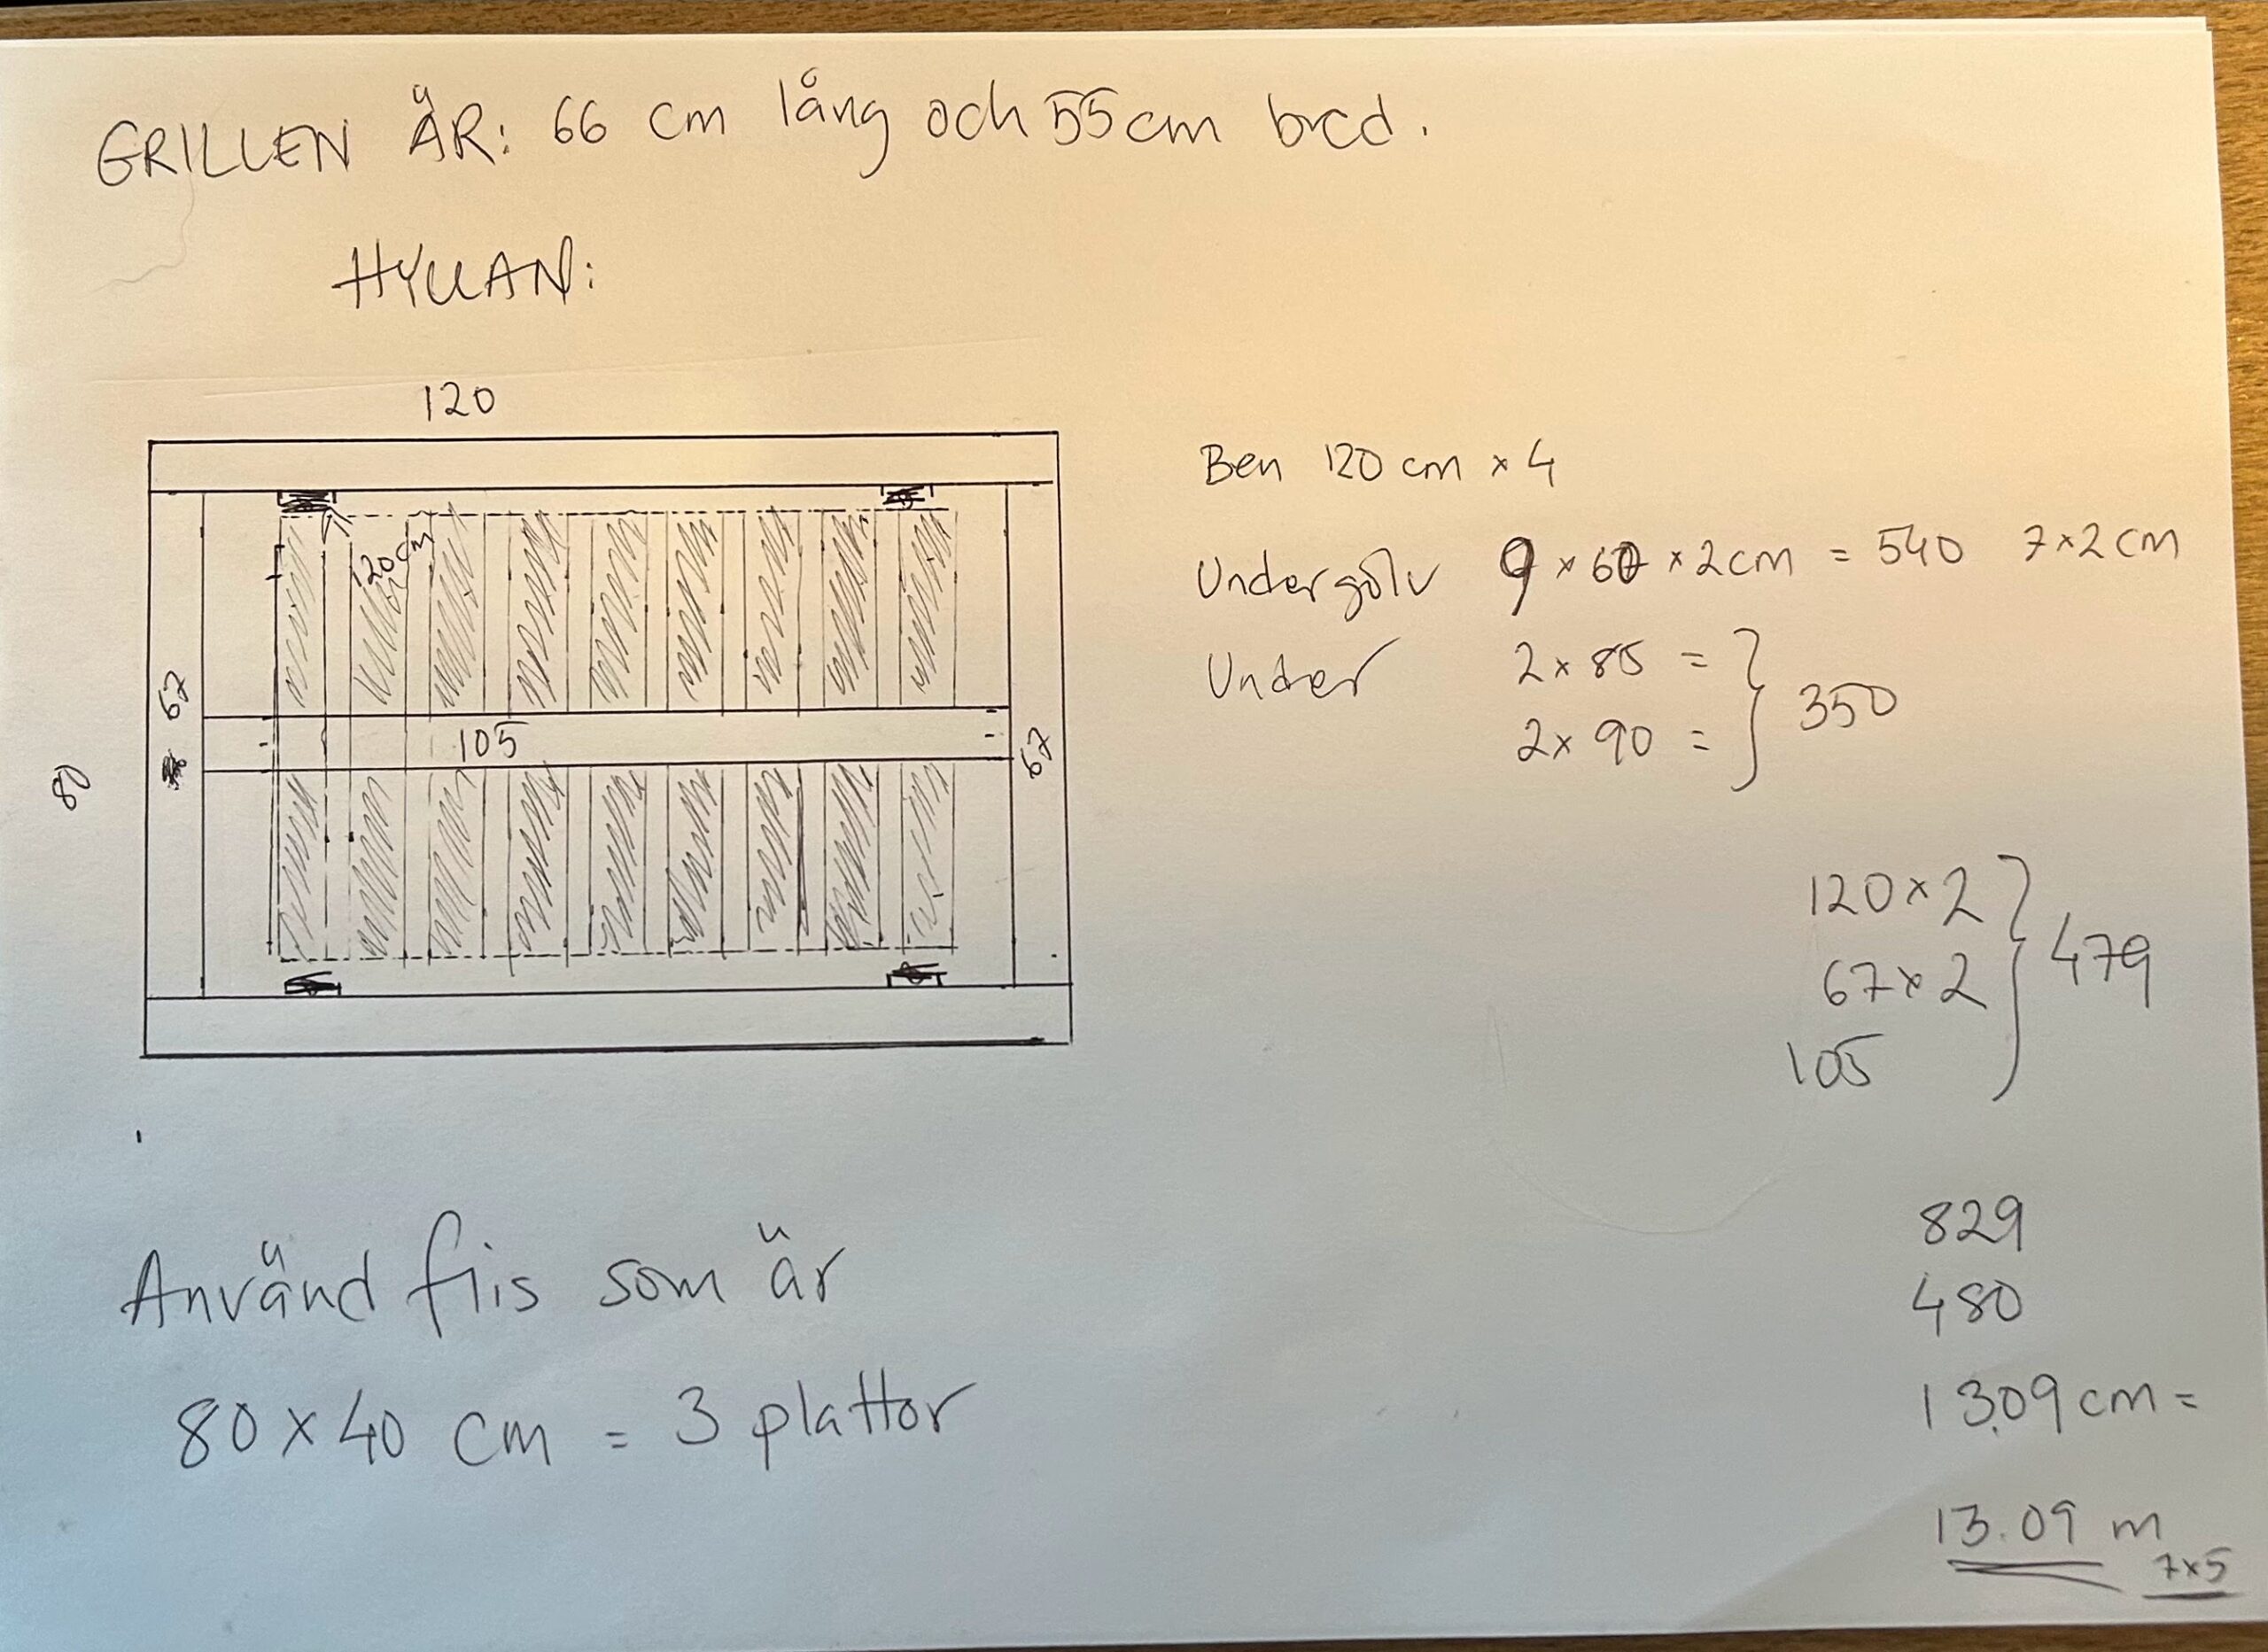 GRILLEN ÄR: 66 cm lång och 55cm bred.
HYLLAN:
120
120cm
67
105
67
80
Ben 120 cm x 4
Undergolv 9 x 60 x 2cm = 540 7x2cm
Under 2 x 85 =
2 x 90 =
350
120 x 2
67 x 2
105
479
829
480
1309 cm =
13.09 m
7x5
Använd flis som är
80 x 40 cm = 3 plattor